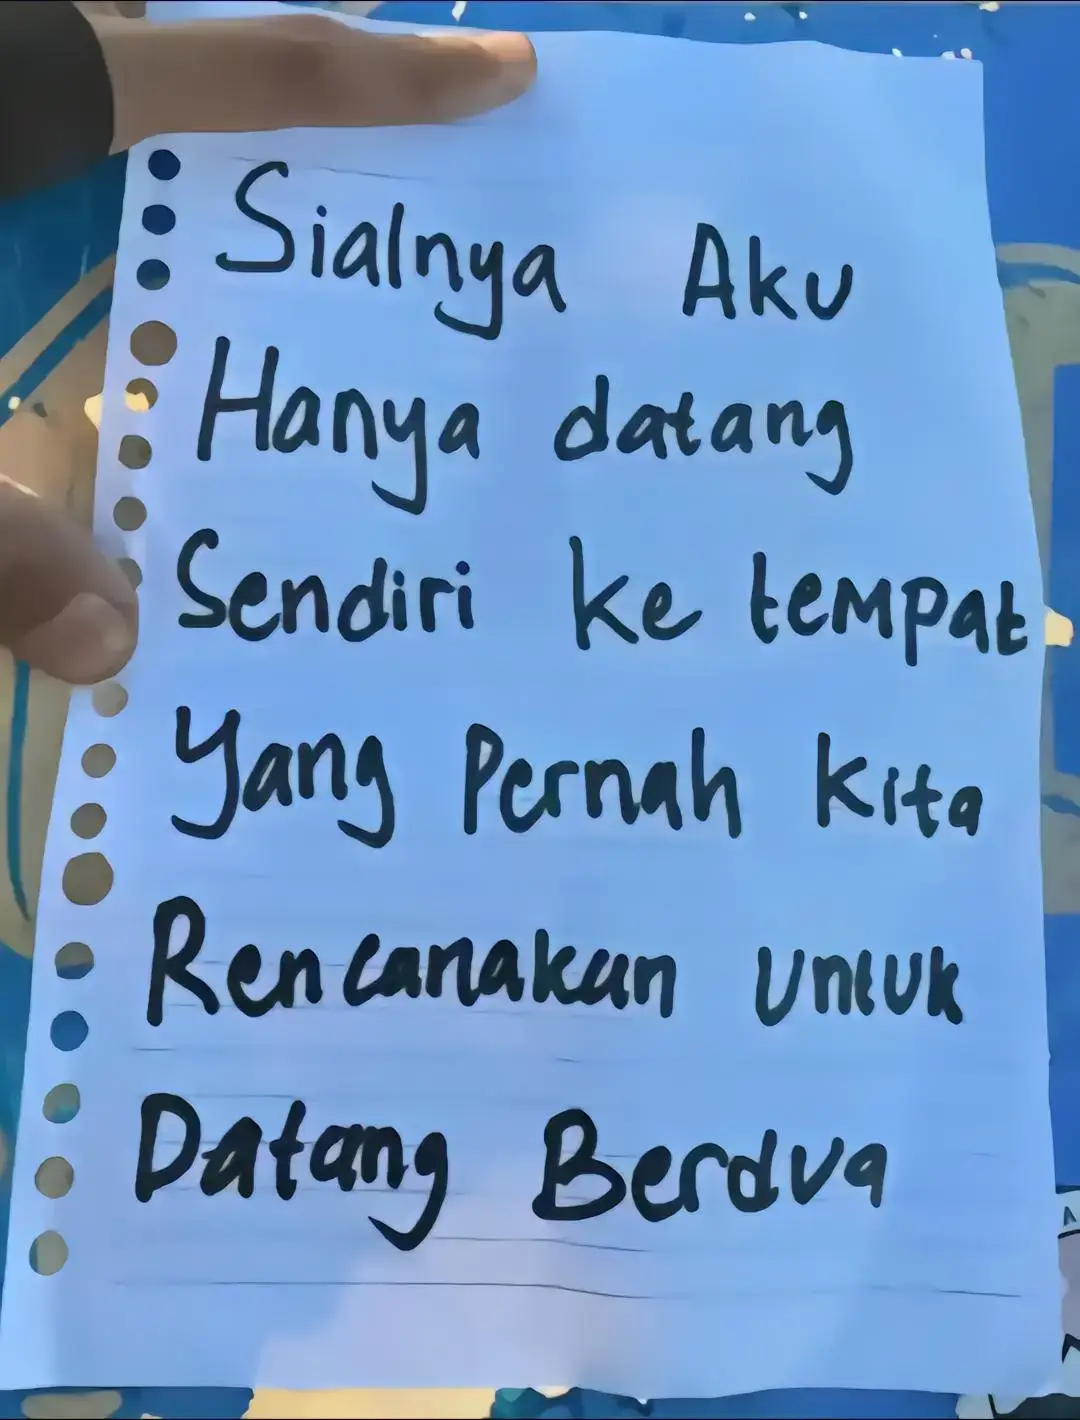 Sialnya Aku
Hanya datang
Sendiri ke tempat
Yang Pernah kita
Rencanakan Untuk
Datang Berdua